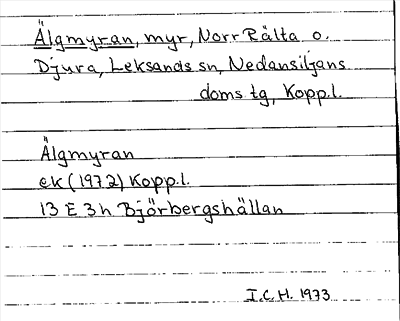 Älgmyran, myr, Norr Rälta o.
Djura, Leksands sn, Nedansiljans
doms tg, Kopp.l.
Älgmyran
ek (1972) Kopp.l.
13 E 3h Björbergshällan
I.C.H. 1973